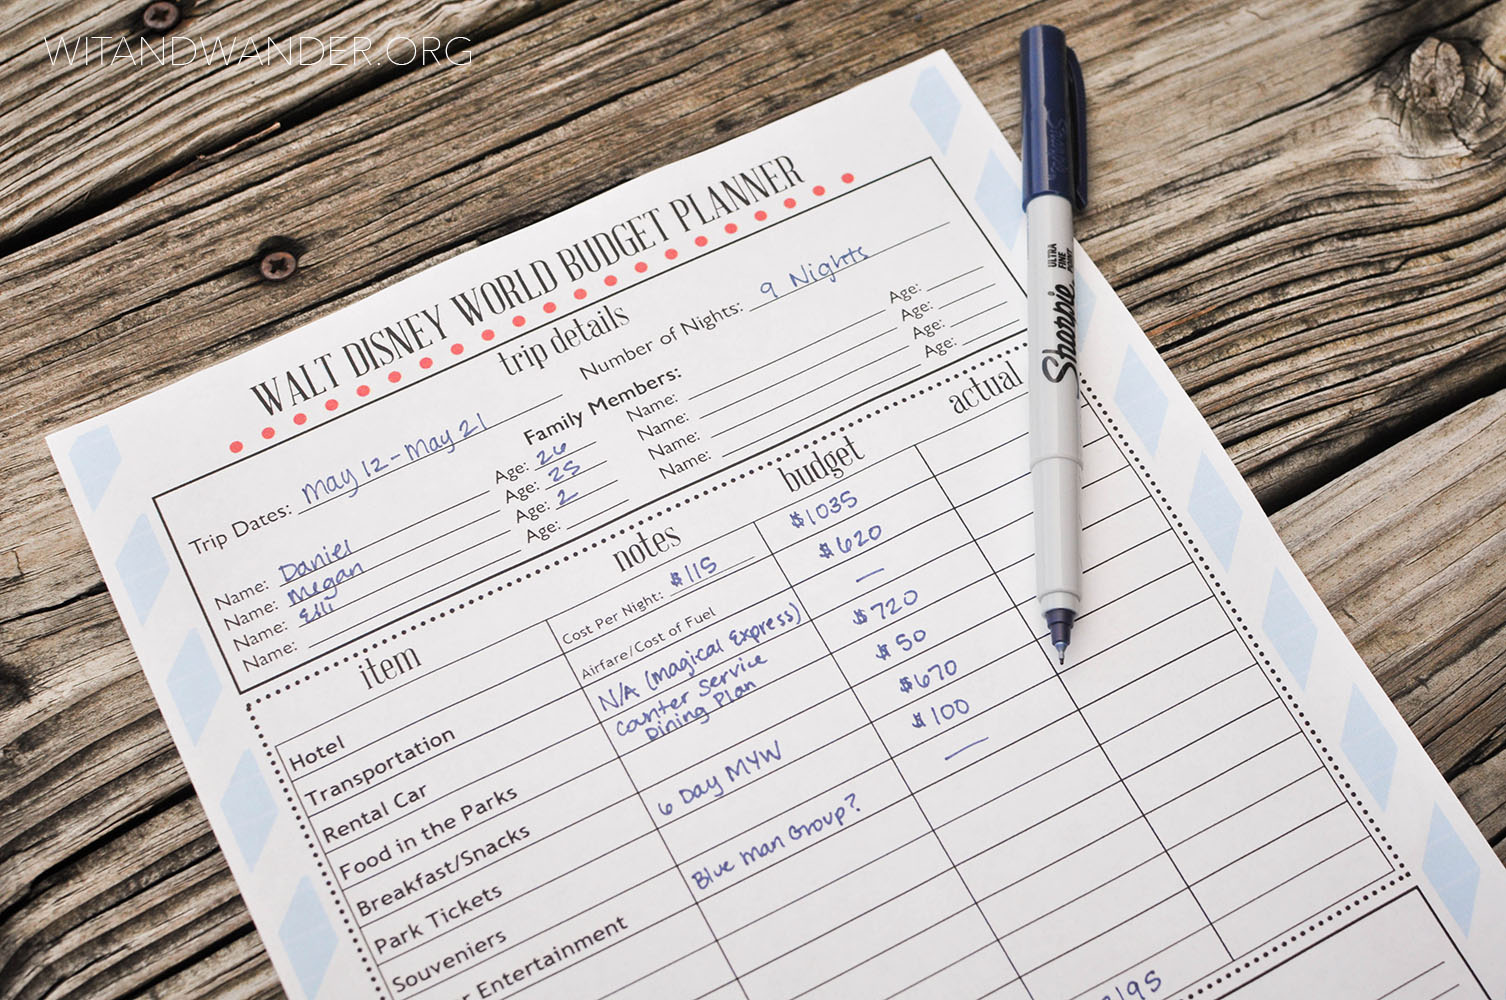 WITANDWANDER.ORG
WALT DISNEY WORLD BUDGET PLANNER
trip details
Trip Dates: May 12 - May 21 Number of Nights: 9 Nights
Family Members:
Name: Daniel Age: 26 Name: Age:
Name: Megan Age: 25 Name: Age:
Name: Elli Age: 2 Name: Age:
Name: Age: Name: Age:
item notes budget actual
Hotel Cost Per Night: $115 $1035
Transportation Airfare/Cost of Fuel $620
Rental Car N/A (Magical Express) —
Food in the Parks Counter Service Dining Plan $720
Breakfast/Snacks $50
Park Tickets 6 Day MYW $670
Souveniers $100
Entertainment Blue Man Group? —
Sharpie
ULTRA
FINE
POINT
Sharpie